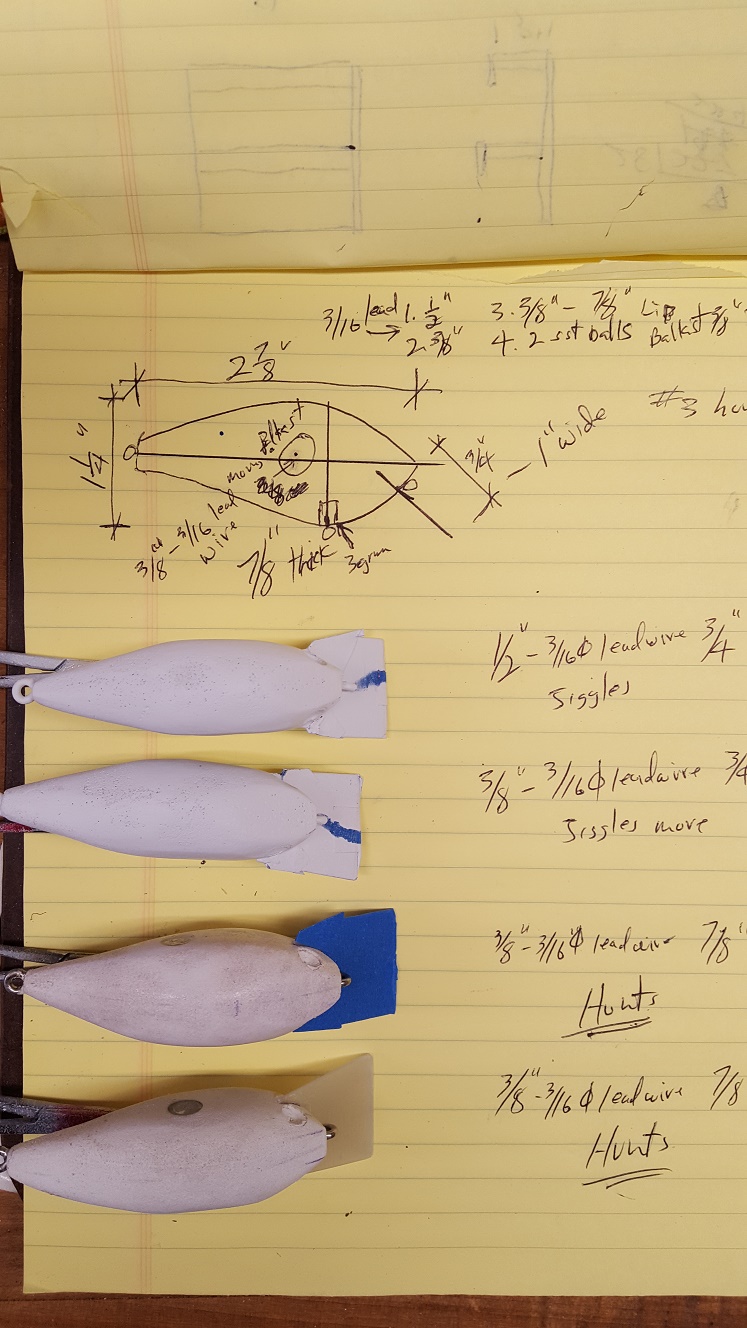 3/16 lead → 1. 1/2"
2. 3/8"
3. 3/8" - 7/8" Lip
4. 2 sst balls Ballast 3/8"
2 7/8"
1 1/4"
3/4" - 1" wide
#3
moving Ballast
3/8" - 3/16 lead
wire
7/8" thick
3 gram
1/2" - 3/16 ϕ leadwire 3/4"
Jiggles
3/8" - 3/16 ϕ leadwire
Jiggles more
3/8" - 3/16" ϕ leadwire 7/8"
Hunts
3/8" - 3/16 ϕ leadwire 7/8
Hunts